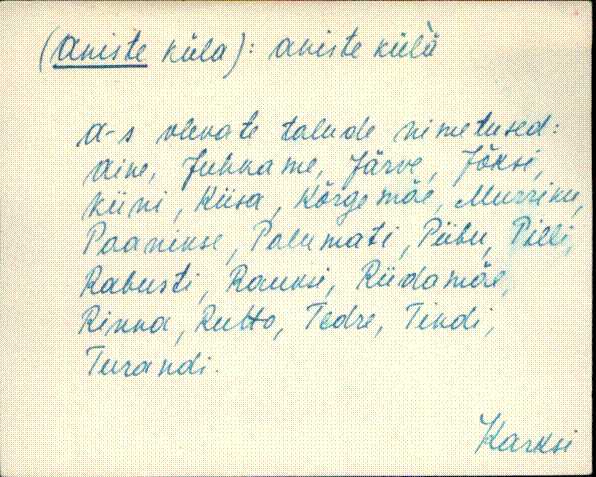 (Aniste küla): aniste külä
A-s olevate talude nimetused:
Aine, Juhkame, Järve, Jõksi,
Kiini, Kiisa, Kõrgemäe, Murriku,
Paanikse, Palumati, Piibu, Pilli,
Rabusti, Rauksi, Riidamäe,
Rinka, Rutto, Tedre, Tindi,
Turandi.
Karksi